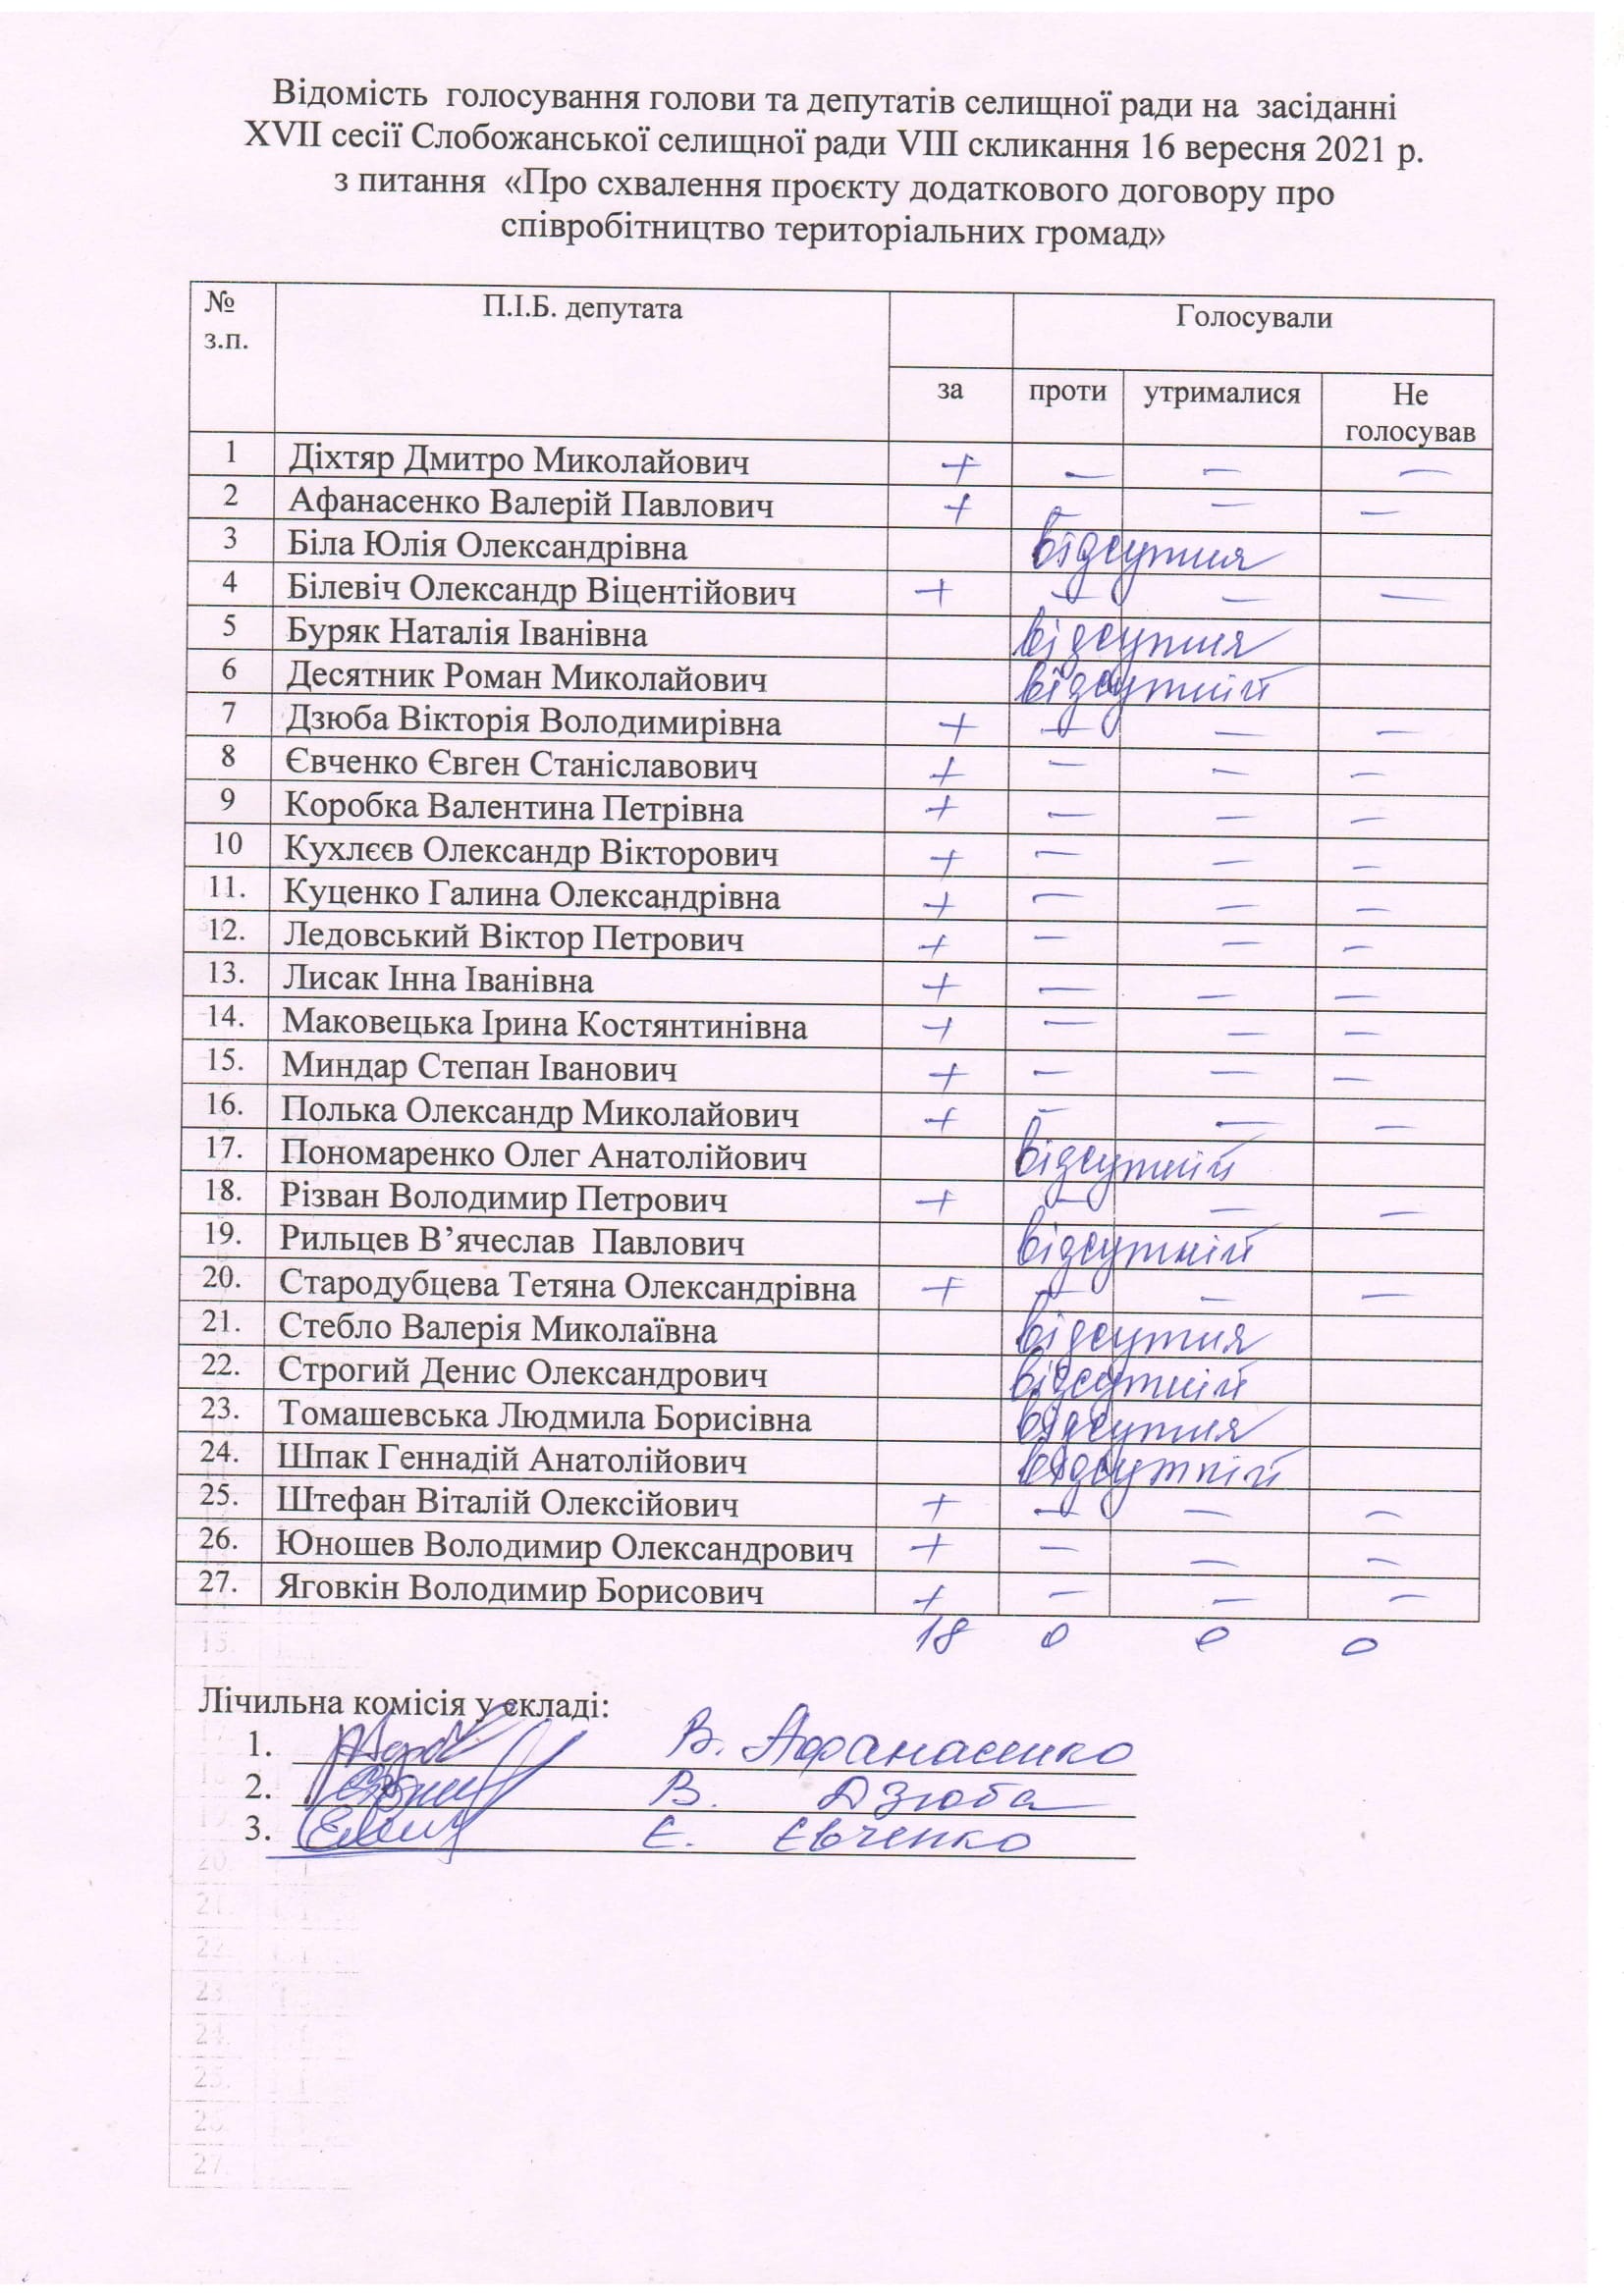 Відомість голосування голови та депутатів селищної ради на засіданні
XVII сесії Слобожанської селищної ради VIII скликання 16 вересня 2021 р.
з питання «Про схвалення проєкту додаткового договору про
співробітництво територіальних громад»
№ з.п. П.І.Б. депутата Голосували
за проти утрималися Не голосував
1 Діхтяр Дмитро Миколайович + – – –
2 Афанасенко Валерій Павлович + – – –
3 Біла Юлія Олександрівна відсутня
4 Білевіч Олександр Віцентійович + – – –
5 Буряк Наталія Іванівна відсутня
6 Десятник Роман Миколайович відсутній
7 Дзюба Вікторія Володимирівна + – – –
8 Євченко Євген Станіславович + – – –
9 Коробка Валентина Петрівна + – – –
10 Кухлєєв Олександр Вікторович + – – –
11. Куценко Галина Олександрівна + – – –
12. Ледовський Віктор Петрович + – – –
13. Лисак Інна Іванівна + – – –
14. Маковецька Ірина Костянтинівна + – – –
15. Миндар Степан Іванович + – – –
16. Полька Олександр Миколайович + – – –
17. Пономаренко Олег Анатолійович відсутній
18. Різван Володимир Петрович + – – –
19. Рильцев В’ячеслав Павлович відсутній
20. Стародубцева Тетяна Олександрівна + – – –
21. Стебло Валерія Миколаївна відсутня
22. Строгий Денис Олександрович відсутній
23. Томашевська Людмила Борисівна відсутня
24. Шпак Геннадій Анатолійович відсутній
25. Штефан Віталій Олексійович + – – –
26. Юношев Володимир Олександрович + – – –
27. Яговкін Володимир Борисович + – – –
18 0 0 0
Лічильна комісія у складі:
1. В. Афанасенко
2. В. Дзюба
3. Є. Євченко